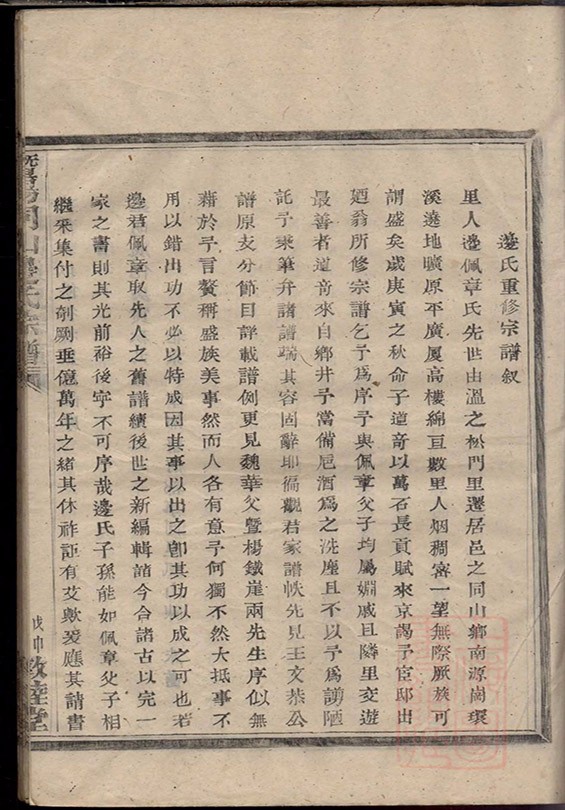 邊氏重修宗譜叙
里人邊佩章氏先世由溫之松門里遷居邑之同山鄉南源崗環
溪遶地曠原平廣厦高樓綿亘數里人烟稠密一望無際厥族可
謂盛矣歲庚寅之秋命子道竒以萬石長貢賦來京謁予官邸出
廼翁所修宗譜乞予爲序予與佩章父子均屬姻戚且隣里交遊
最善者道竒來自鄉井予當備巵酒爲之洗塵且不以予爲譾陋
託予秉筆弁諸譜端其容固辭耶徧觀君家譜帙先見王文恭公
譜原支分節目詳載譜例更見魏華父暨楊鐵崖兩先生序似無
藉於予言贅稱盛族美事然而人各有意予何獨不然大抵事不
用以錯出功不必以特成因其事以出之卽其功以成之可也若
邊君佩章取先人之舊譜續後世之新編輯諸今合諸古以完一
家之書則其光前裕後寧不可序哉邊氏子孫能如佩章父子相
繼來集付之剞劂垂億萬年之緒其休祚詎有艾歟爰應其請書
暨陽同山邊氏宗譜
戊申 敦睦堂